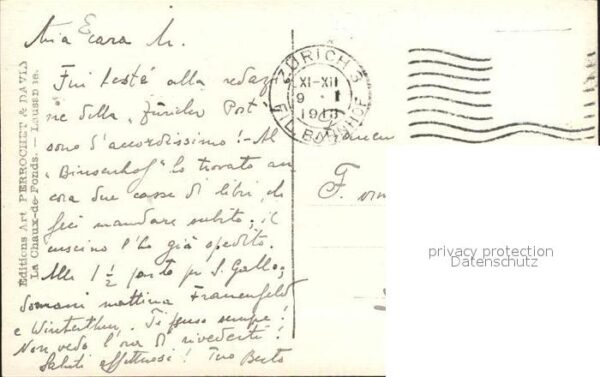 Mia cara M.
Fui testé alla redazio
ne della "Züricher Post"
sono d'accordissimo! - Al
"Binsenhof" ho trovato an
cora due casse di libri, che
feci mandare subito; il
cuscino l'ho già spedito.
Alle 1 ½ parto per S. Gallo;
domani mattina Frauenfeld
e Winterthur. Ti penso sempre!
Non vedo l'ora di rivederti!
Saluti affettuosi! Tuo Berto
Editions Art PERROCHET & DAVID
La Chaux-de-Fonds. - Lausanne.
ZÜRICH 3
XI-XII
9 I
SIHLBAHNHOF
F.
privacy protection
Datenschutz